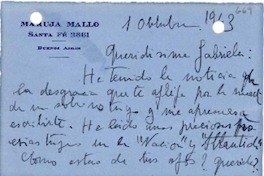 MARUJA MALLO
SANTA FÉ 2861
BUENOS AIRES
669
1 Octubre 1943
Queridisima Gabriela:
He tenido la noticia de
la desgracia que te aflije por la muerte
de un sobrino tuyo y me apresuro a
escribirte. He leido unas preciosas
poesias tuyas en la "Nacion" y "Atlantida"
Como estas de tus ojos? querida?